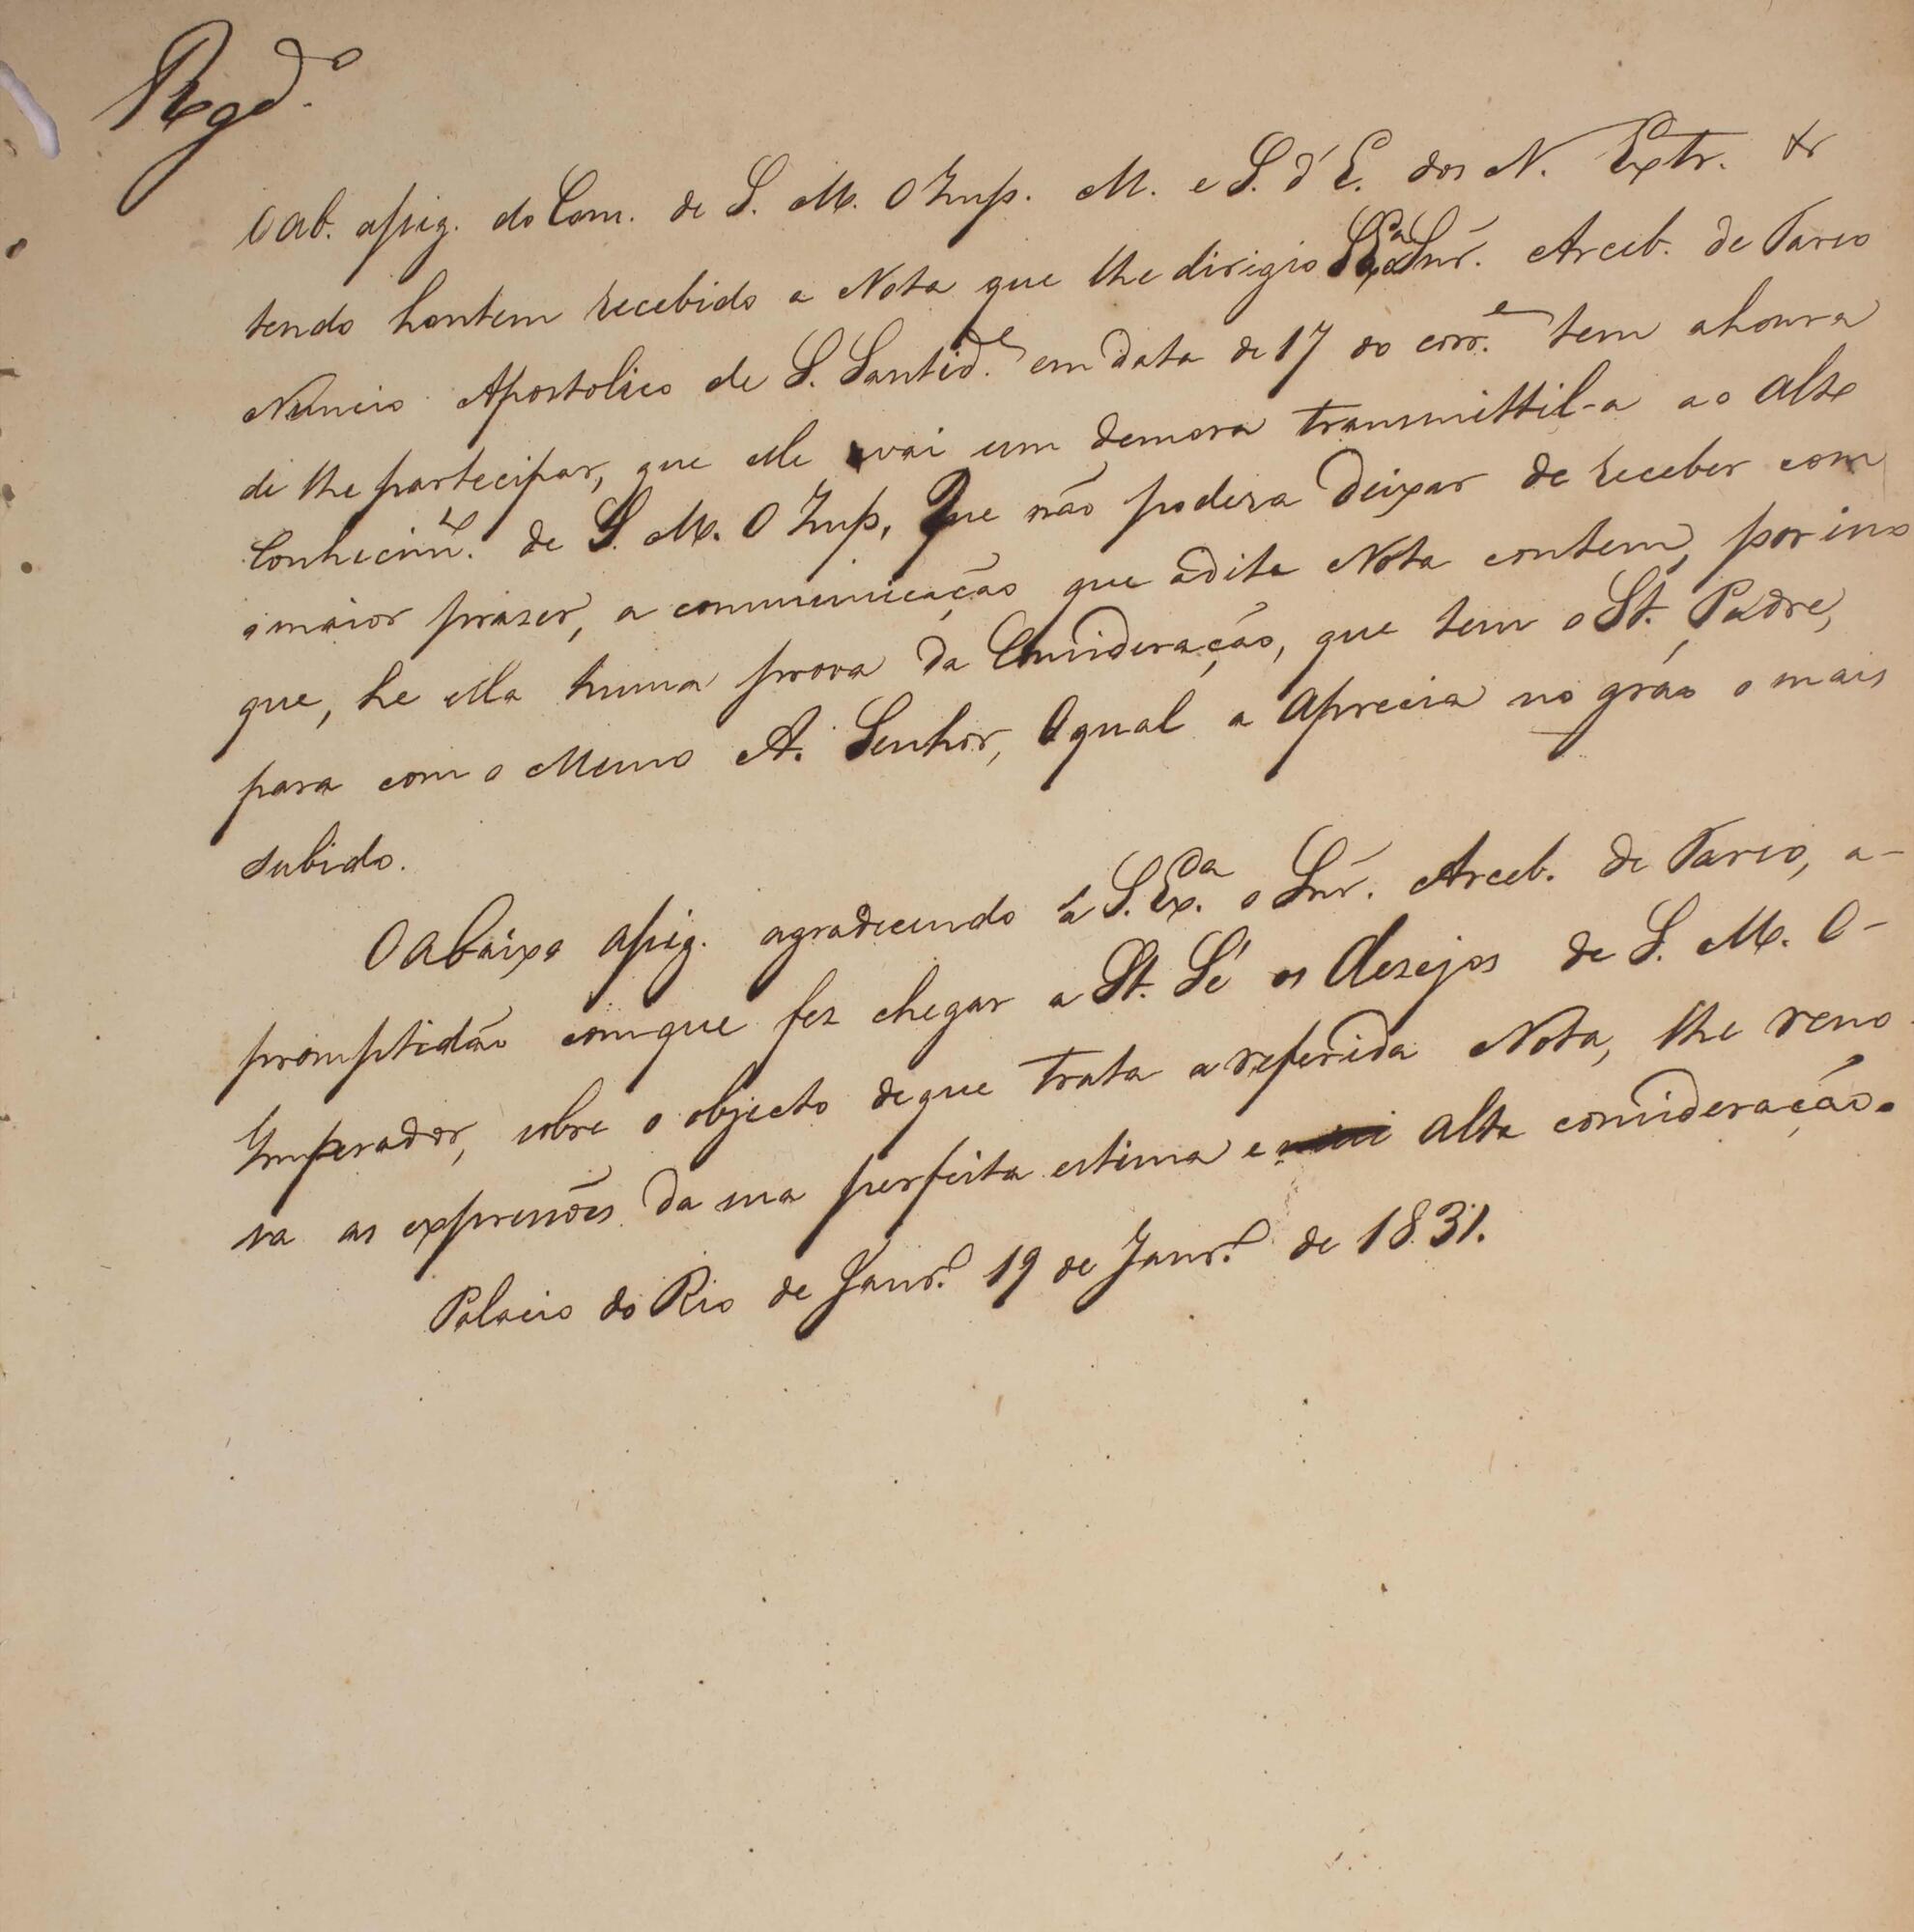 Regd.º
O ab. assig. do Com. de S. M. O Imp. M. e S. d'E. dos N. Extr. &
tendo hontem recebido a Nota que lhe dirigio S. Exª o Snr. Arceb. de Tarso
Nuncio Apostolico de S. Santid.e em data de 17 do corr.e tem a honra
de lhe partecipar, que elle vai sem demora transmittil-a ao alto
Conhecim.to de S. M. O Imp. Que não poderá deixar de receber com
o maior prazer, a communicação que a dita Nota contem, por isso
que, he ella huma prova da Consideração, que tem o St. Padre,
para com o Mesmo A. Senhor, O qual a Aprecia no gráo o mais
subido.
O abaixo assig. agradecendo à S. Ex.cia o Snr. Arceb. de Tarso, a-
promptidão com que fez chegar a St. Sé os desejos de S. M. O-
Imperador, sobre o objecto de que trata a referida Nota, lhe reno-
va as expressões da sua perfeita estima e alta consideração.
Palacio do Rio de Janr.º 19 de Janr.º de 1831.